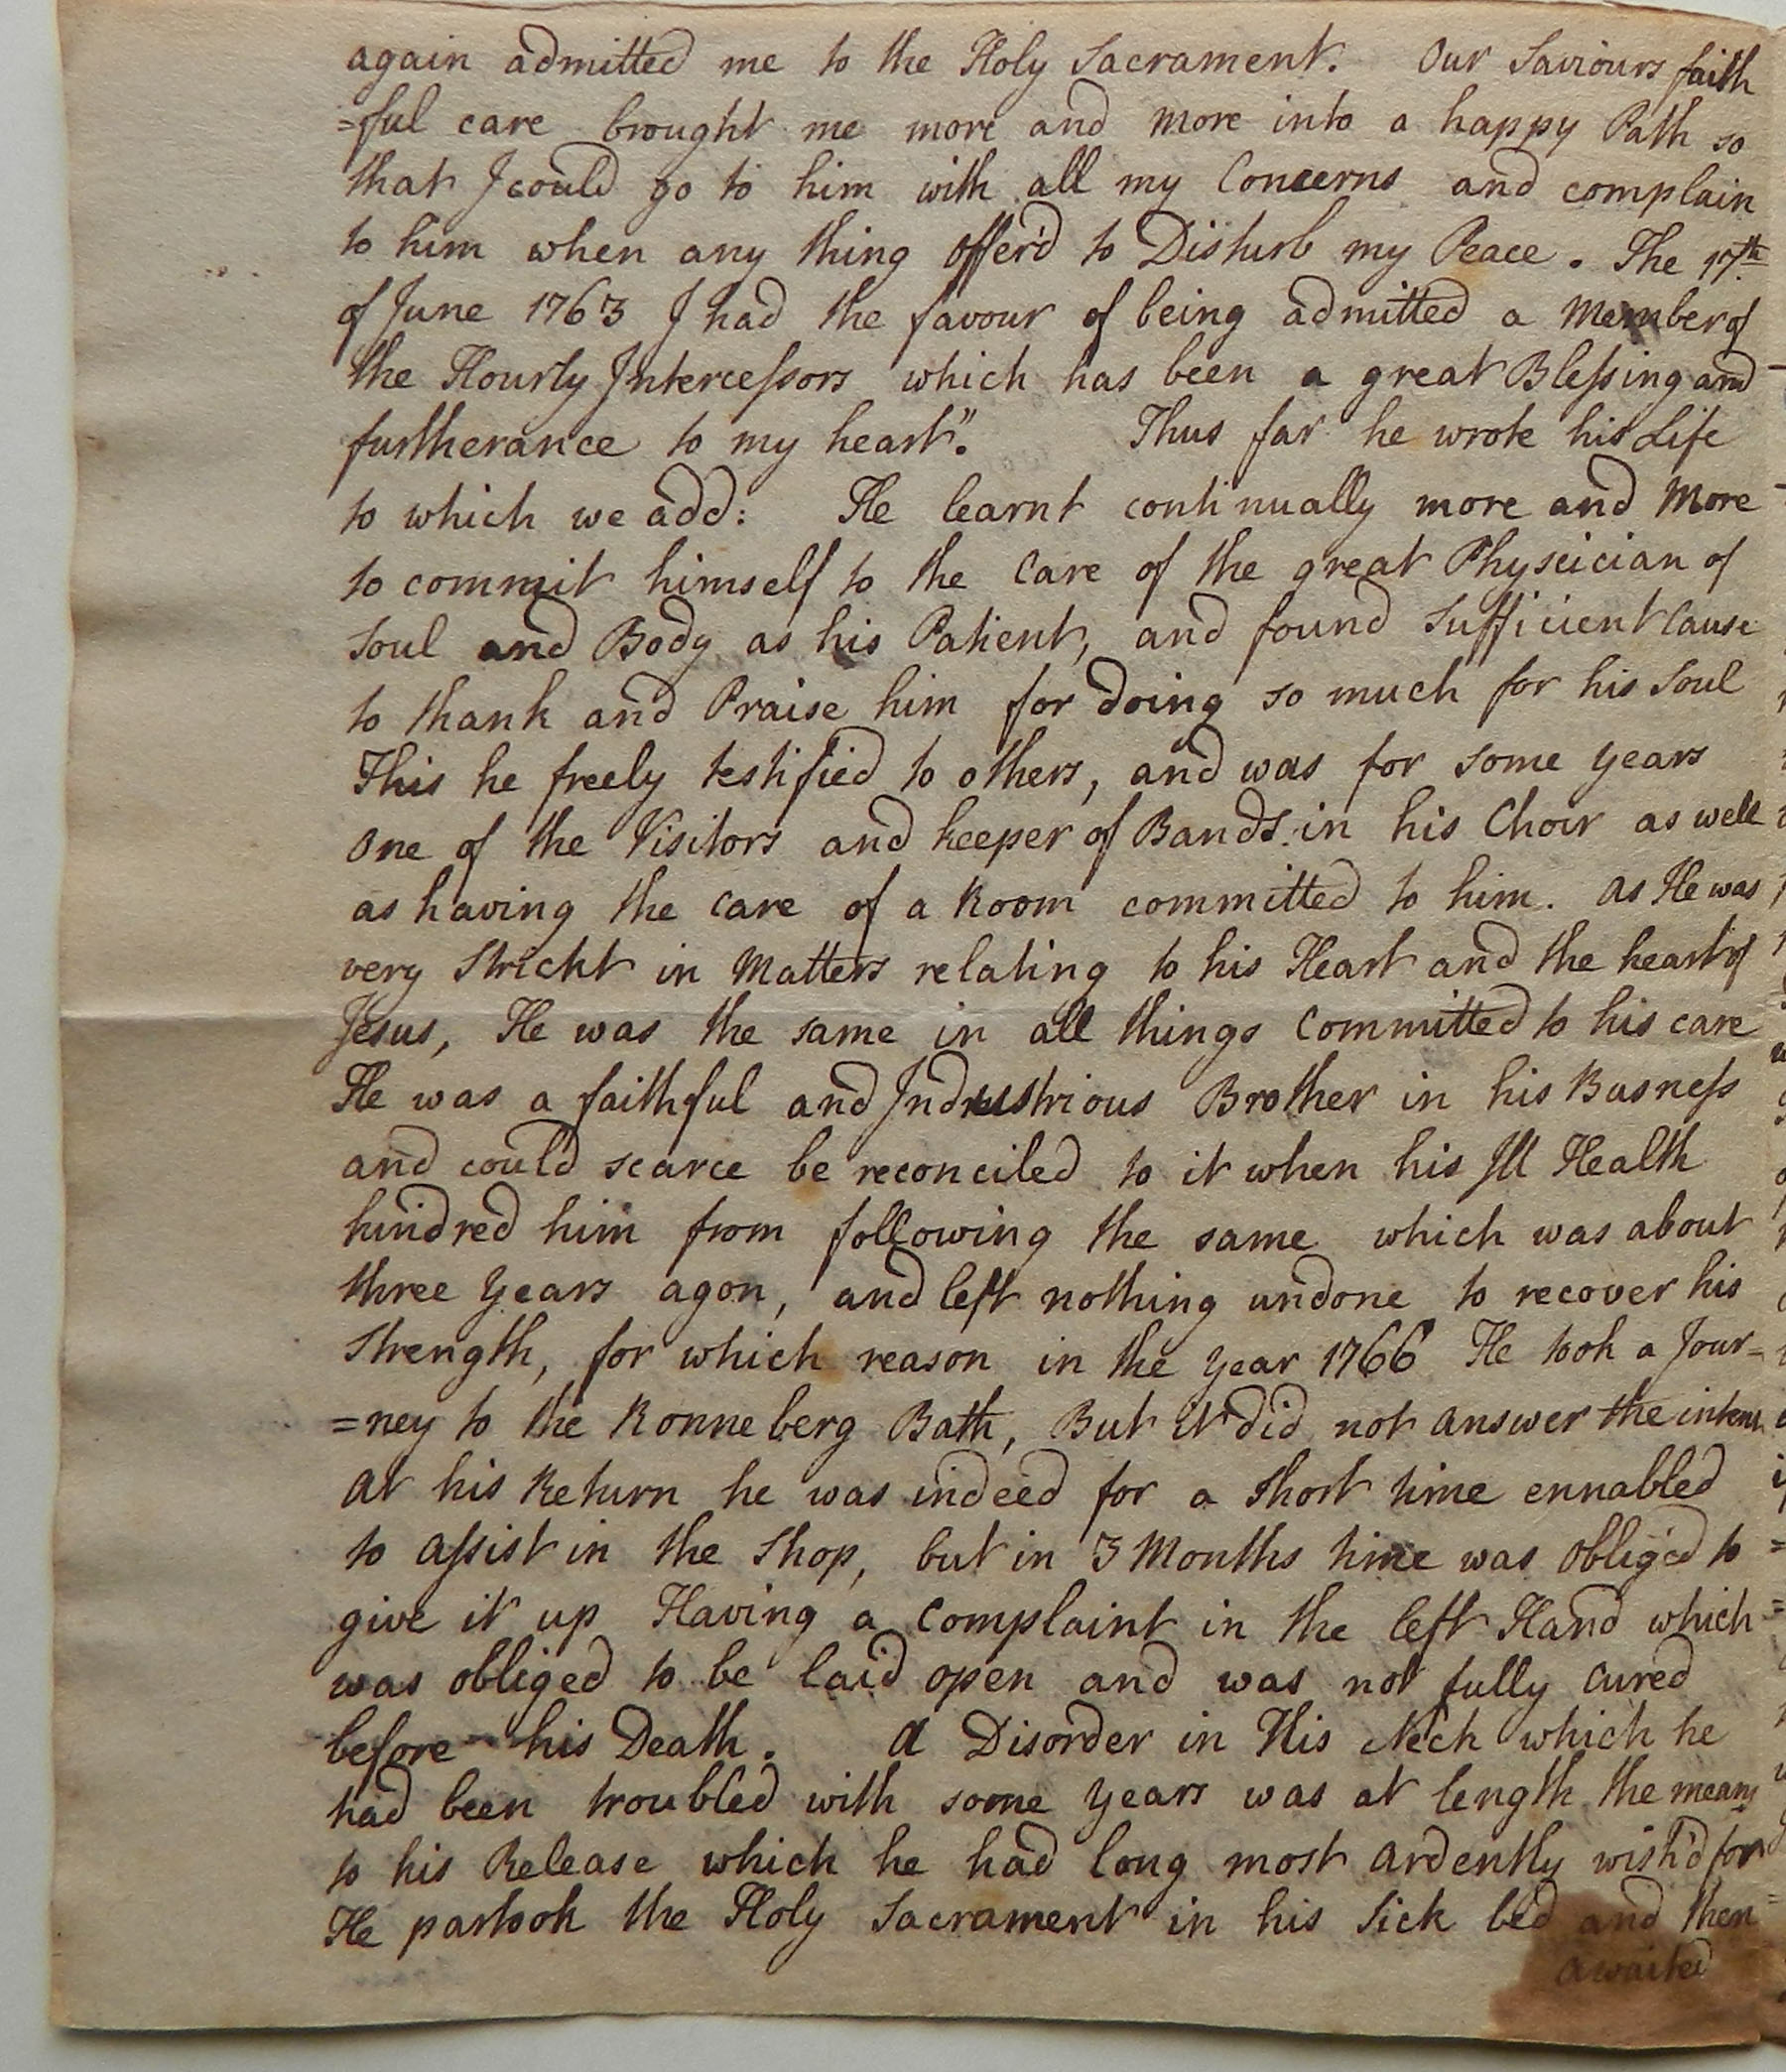 again admitted me to the Holy Sacrament. Our Saviours faith
=ful care brought me more and more into a happy Path so
that I could go to him with all my Concerns and complain
to him when any thing offer'd to Disturb my Peace. The 17th
of June 1763 I had the favour of being admitted a Member of
the Hourly Intercessors which has been a great Blessing and
furtherance to my heart". Thus far he wrote his Life
to which we add: He learnt continually more and More
to commit himself to the Care of the great Physcician of
Soul and Body as his Patient, and found Sufficient Cause
to thank and Praise him for doing so much for his Soul
This he freely testified to others, and was for some years
One of the Visitors and keeper of Bands in his Choir as well
as having the care of a Room committed to him. As He was
very Strickt in Matters relating to his Heart and the heart of
Jesus, He was the same in all things Committed to his care
He was a faithful and Industrious Brother in his Busness
and could scarce be reconciled to it when his Ill Health
hindred him from following the same which was about
three years agon, and left nothing undone to recover his
Strength, for which reason in the year 1766 He took a Jour=
=ney to the Ronneberg Bath, But it did not answer the intent
At his Return he was indeed for a Short time ennabled
to assist in the Shop, but in 3 Months time was Oblig'd to
give it up Having a Complaint in the left Hand which
was obliged to be laid open and was not fully Cured
before his Death. A Disorder in His Neck which he
had been troubled with some years was at length the means
to his Release which he had long most Ardently wish'd for
He partook the Holy Sacrament in his Sick bed and then
awaited